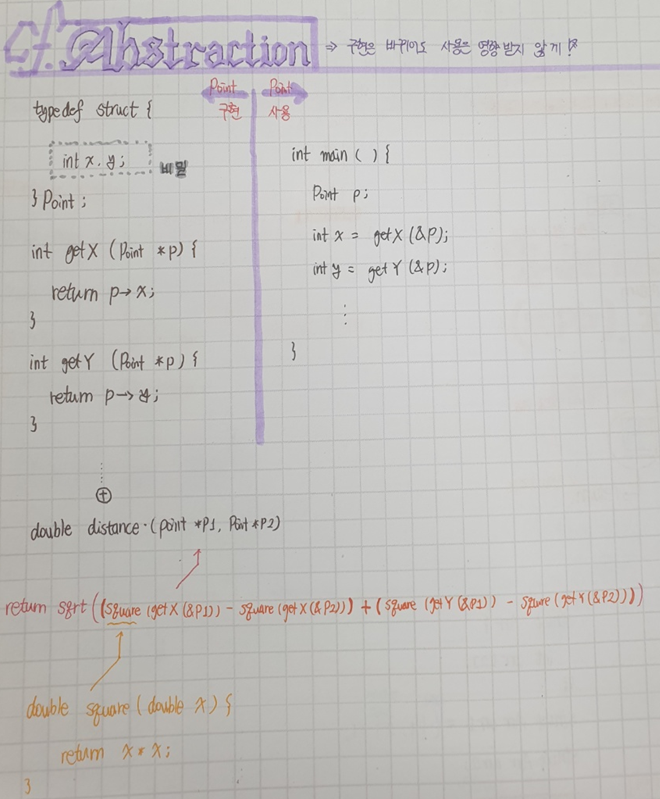 cf. Abstraction ⇒ 구현은 바뀌어도 사용은 영향 받지 않게!
Point Point
구현 사용
typedef struct {
int x, y;
비밀
} Point ;
int getX (Point *p) {
return p→x;
}
int getY (Point *p) {
return p→y;
}
int main ( ) {
Point p;
int x = getX (&p);
int y = getY (&p);
⋮
}
⊕
double distance (point *P1, Point *P2)
return sqrt((square (getX (&P1)) - square (getX (&P2))) + (square (getY (&P1)) - square (getY (&P2))))
double square ( double x ) {
return x * x;
}